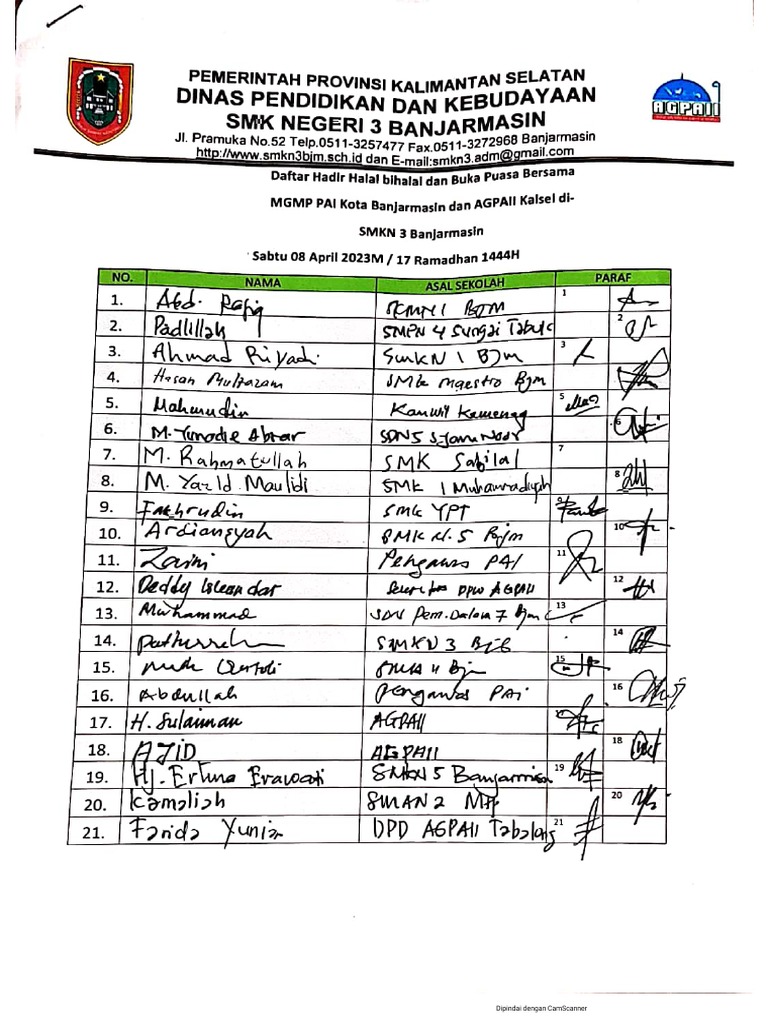 PEMERINTAH PROVINSI KALIMANTAN SELATAN
AGPAII
DINAS PENDIDIKAN DAN KEBUDAYAAN
SMK NEGERI 3 BANJARMASIN
Jl. Pramuka No.52 Telp.0511-3257477 Fax.0511-3272968 Banjarmasin
http://www.smkn3bjm.sch.id dan E-mail:smkn3.adm@gmail.com
Daftar Hadir Halal bihalal dan Buka Puasa Bersama
MGMP PAI Kota Banjarmasin dan AGPAII Kalsel di-
SMKN 3 Banjarmasin
Sabtu 08 April 2023M / 17 Ramadhan 1444H
NO. NAMA ASAL SEKOLAH PARAF
1. Abd. Rafiq BJM 1
2. Padlillah SMPN 4 Sungai Tabuk 2
3. Ahmad Riyadi SMKN 1 Bjm 3
4. Hasan SMK Maestro Bjm
5. Mahmudin Kanwil Kemenag 5
6. M. Abrar SDN 5 6
7. M. Rahmatullah SMK Sabilal 7
8. M. Yazid Maulidi SMK 1 Muhammadiyah 8
9. Fakhrudin SMK YPT 9
10. Ardiansyah SMK N. 5 Bjm 10
11. Zaini Pengawas PAI 11
12. Deddy Iskandar DPW AGPAII 12
13. Muhammad SDN Pem. Dalam 7 Bjm 13
14. SMKN 3 14
15. 4 Bjm 15
16. Abdullah Pengawas PAI 16
17. H. Sulaiman AGPAII 17
18. AJID AGPAII 18
19. Hj. Erlina Erawati SMKN 5 Banjarmasin 19
20. Kamaliah SMAN 2 20
21. Farida Yuniar DPD AGPAII Tabalong 21
Dipindai dengan CamScanner